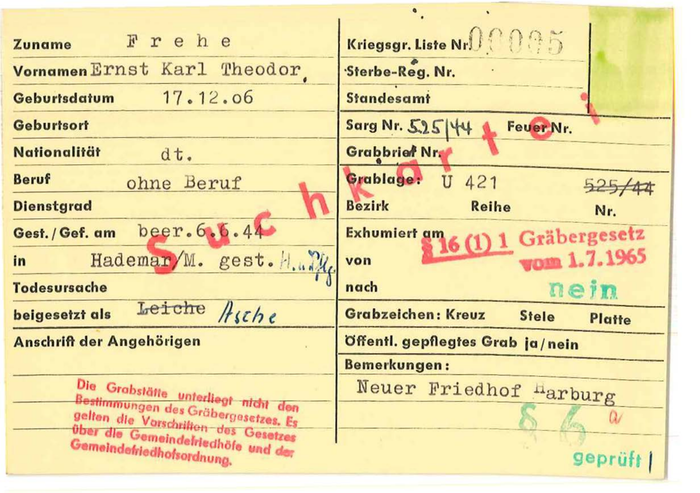 Zuname Frehe
Vornamen Ernst Karl Theodor,
Geburtsdatum 17.12.06
Geburtsort
Nationalität dt.
Beruf ohne Beruf
Dienstgrad
Gest./Gef. am beer.6.6.44
in Hademar/M. gest.
Todesursache
beigesetzt als Leiche Asche
Anschrift der Angehörigen
Die Grabstätte unterliegt nicht den
Bestimmungen des Gräbergesetzes. Es
gelten die Vorschriften des Gesetzes
über die Gemeindefriedhöfe und der
Gemeindefriedhofsordnung.
Suchkartei
Kriegsgr. Liste Nr. 00005
Sterbe-Reg. Nr.
Standesamt
Sarg Nr. 525/44 Feuer Nr.
Grabbrief Nr.
Grablage: U 421 525/44
Bezirk Reihe Nr.
Exhumiert am
§ 16 (1) 1 Gräbergesetz
von vom 1.7.1965
nach nein
Grabzeichen: Kreuz Stele Platte
Öffentl. gepflegtes Grab ja/nein
Bemerkungen:
Neuer Friedhof Harburg
§ 6 a
geprüft